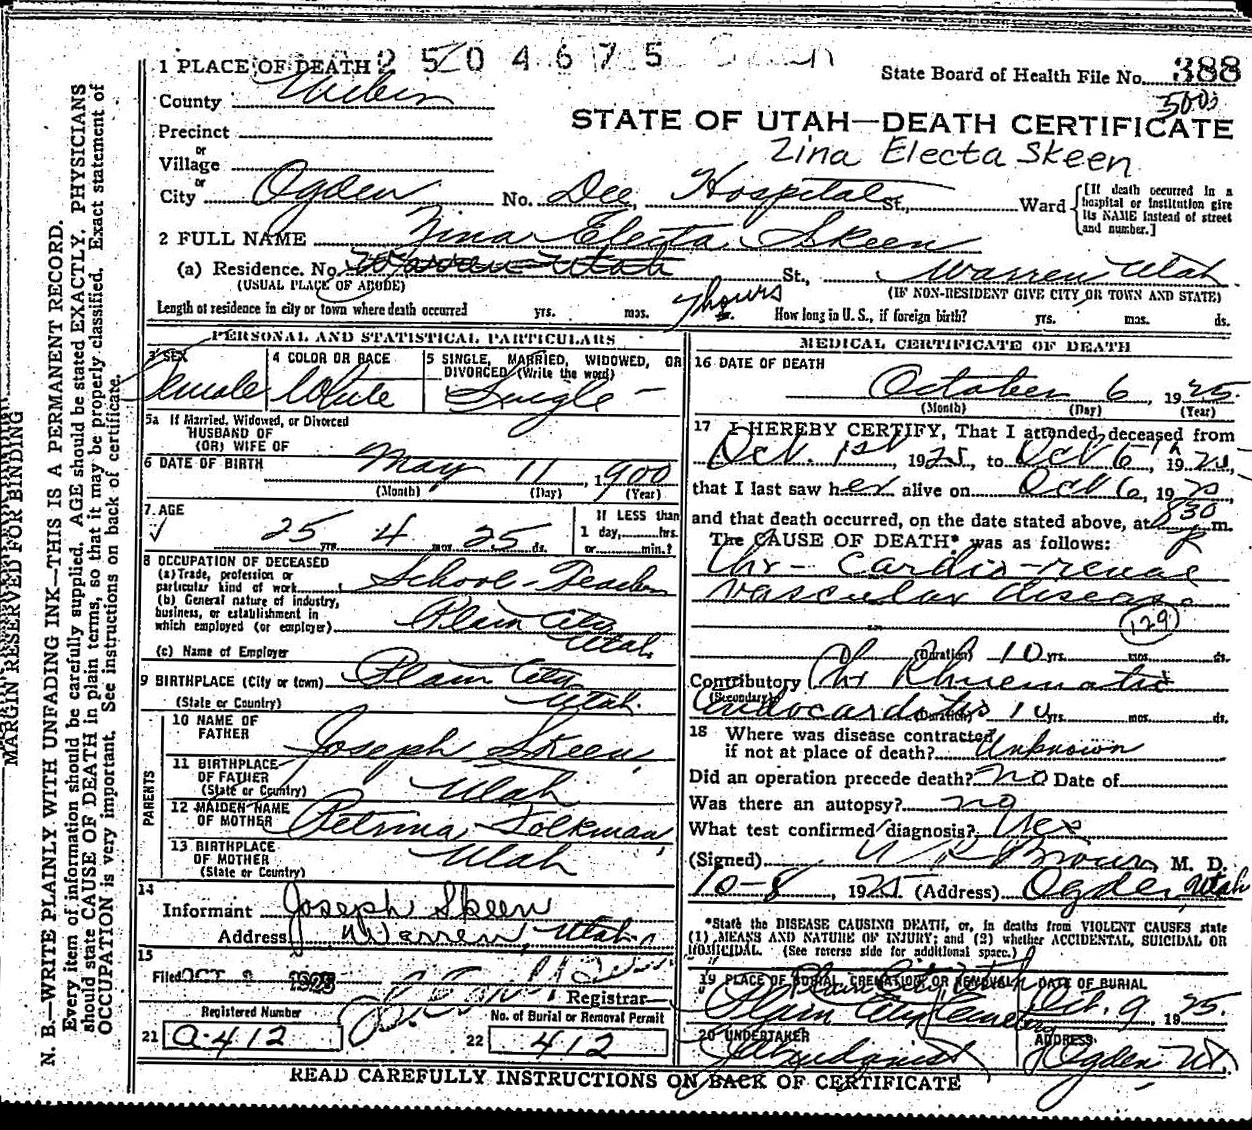 1 PLACE OF DEATH 2504675
State Board of Health File No. 388
County Weber
5000
STATE OF UTAH—DEATH CERTIFICATE
Precinct
Zina Electa Skeen
or
Village
or
City Ogden No. Dee Hospital St., Ward
[If death occurred in a hospital or institution give its NAME instead of street and number.]
2 FULL NAME Zina Electa Skeen
(a) Residence. No. Warren Utah St., Warren Utah
(USUAL PLACE OF ABODE) (IF NON-RESIDENT GIVE CITY OR TOWN AND STATE)
Length of residence in city or town where death occurred yrs. mos. 7 hours ds. How long in U. S., if foreign birth? yrs. mos. ds.
PERSONAL AND STATISTICAL PARTICULARS
3 SEX Female
4 COLOR OR RACE White
5 SINGLE, MARRIED, WIDOWED, OR DIVORCED (Write the word) Single
5a If Married, Widowed, or Divorced
HUSBAND OF
(OR) WIFE OF
6 DATE OF BIRTH May 11, 1900
(Month) (Day) (Year)
7. AGE 25 yrs. 4 mos. 25 ds.
If LESS than
1 day, hrs.
or min.?
8 OCCUPATION OF DECEASED
(a) Trade, profession or
particular kind of work School-Teacher
(b) General nature of industry,
business, or establishment in
which employed (or employer) Plain City Utah.
(c) Name of Employer
9 BIRTHPLACE (City or town) Plain City
(State or Country) Utah.
PARENTS
10 NAME OF FATHER Joseph Skeen
11 BIRTHPLACE OF FATHER (State or Country) Utah
12 MAIDEN NAME OF MOTHER Petrina Folkman
13 BIRTHPLACE OF MOTHER (State or Country) Utah
14
Informant Joseph Skeen
Address Warren, Utah
15
Filed OCT 1925
Registrar
Registered Number
21 a-412
No. of Burial or Removal Permit
22 412
MEDICAL CERTIFICATE OF DEATH
16 DATE OF DEATH
October 6 1925.
(Month) (Day) (Year)
17 I HEREBY CERTIFY, That I attended deceased from
Oct. 1st, 1925, to Oct 6th, 1925,
that I last saw her alive on Oct 6, 1925
and that death occurred, on the date stated above, at 830 P m.
The CAUSE OF DEATH* was as follows:
Chr- Cardio-renal
vascular disease.
129
(Duration) 10 yrs. mos. ds.
Contributory Chr Rhuematic
(Secondary) Endocarditis (Duration) 10 yrs. mos. ds.
18 Where was disease contracted
if not at place of death? Unknown
Did an operation precede death? no Date of
Was there an autopsy? no
What test confirmed diagnosis?
(Signed) Brown, M. D.
10-8, 1925 (Address) Ogden, Utah
*State the DISEASE CAUSING DEATH, or, in deaths from VIOLENT CAUSES state
(1) MEANS AND NATURE OF INJURY; and (2) whether ACCIDENTAL, SUICIDAL OR
HOMICIDAL. (See reverse side for additional space.)
19 PLACE OF BURIAL, CREMATION OR REMOVAL Plain City Utah
Plain City Cemetery
DATE OF BURIAL
Oct. 9, 1925.
20 UNDERTAKER Lindquist
ADDRESS Ogden, Ut.
READ CAREFULLY INSTRUCTIONS ON BACK OF CERTIFICATE
MARGIN RESERVED FOR BINDING
N. B.—WRITE PLAINLY WITH UNFADING INK—THIS IS A PERMANENT RECORD.
Every item of information should be carefully supplied. AGE should be stated EXACTLY. PHYSICIANS
should state CAUSE OF DEATH in plain terms, so that it may be properly classified. Exact statement of
OCCUPATION is very important. See instructions on back of certificate.